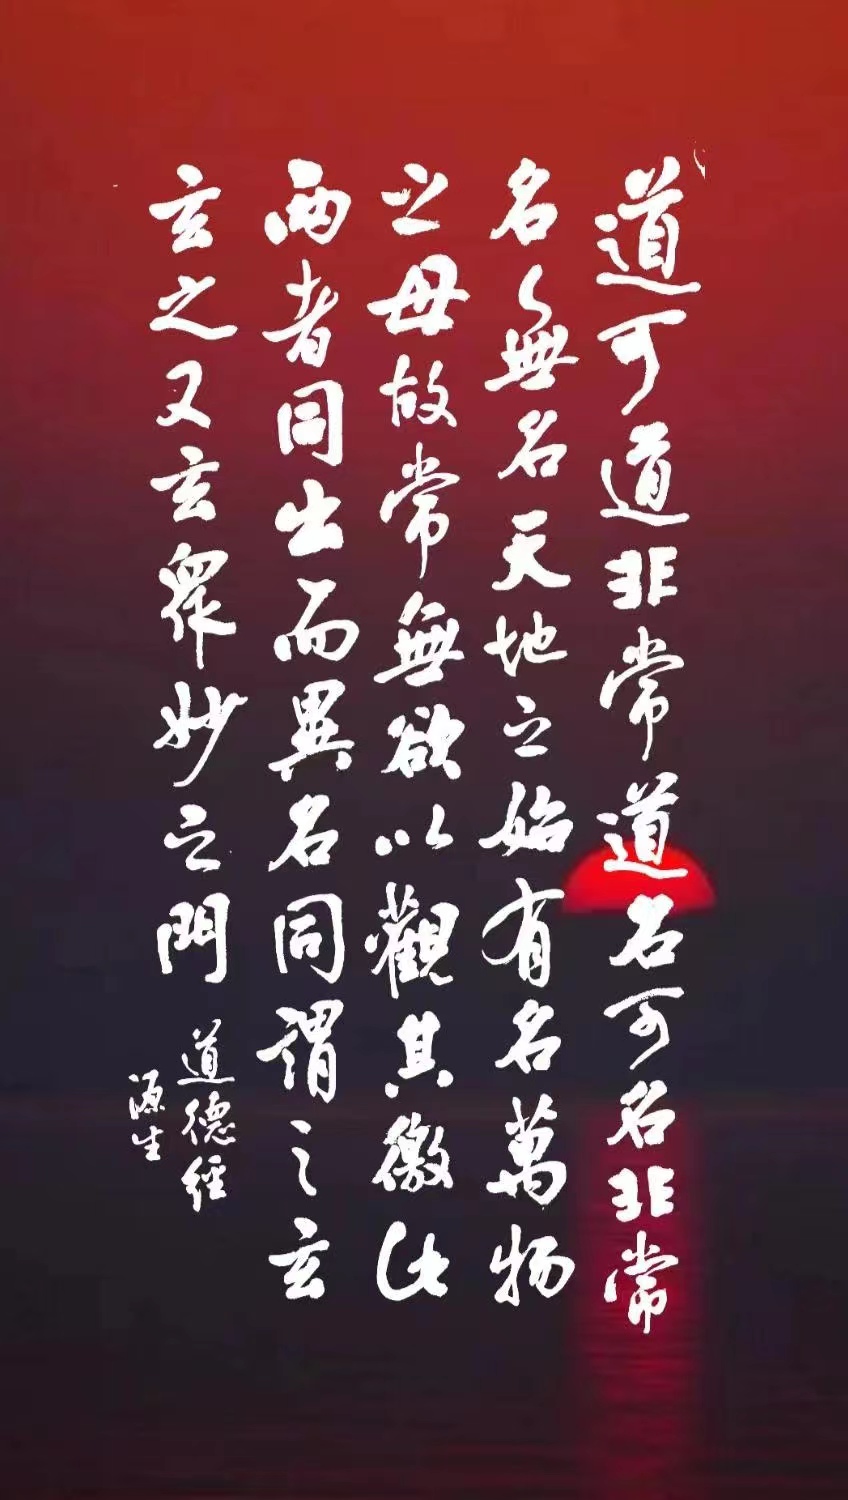 道可道非常道名可名非常
名無名天地之始有名萬物
之母故常無欲以觀其徼此
兩者同出而異名同謂之玄
玄之又玄眾妙之門
道德經
源生